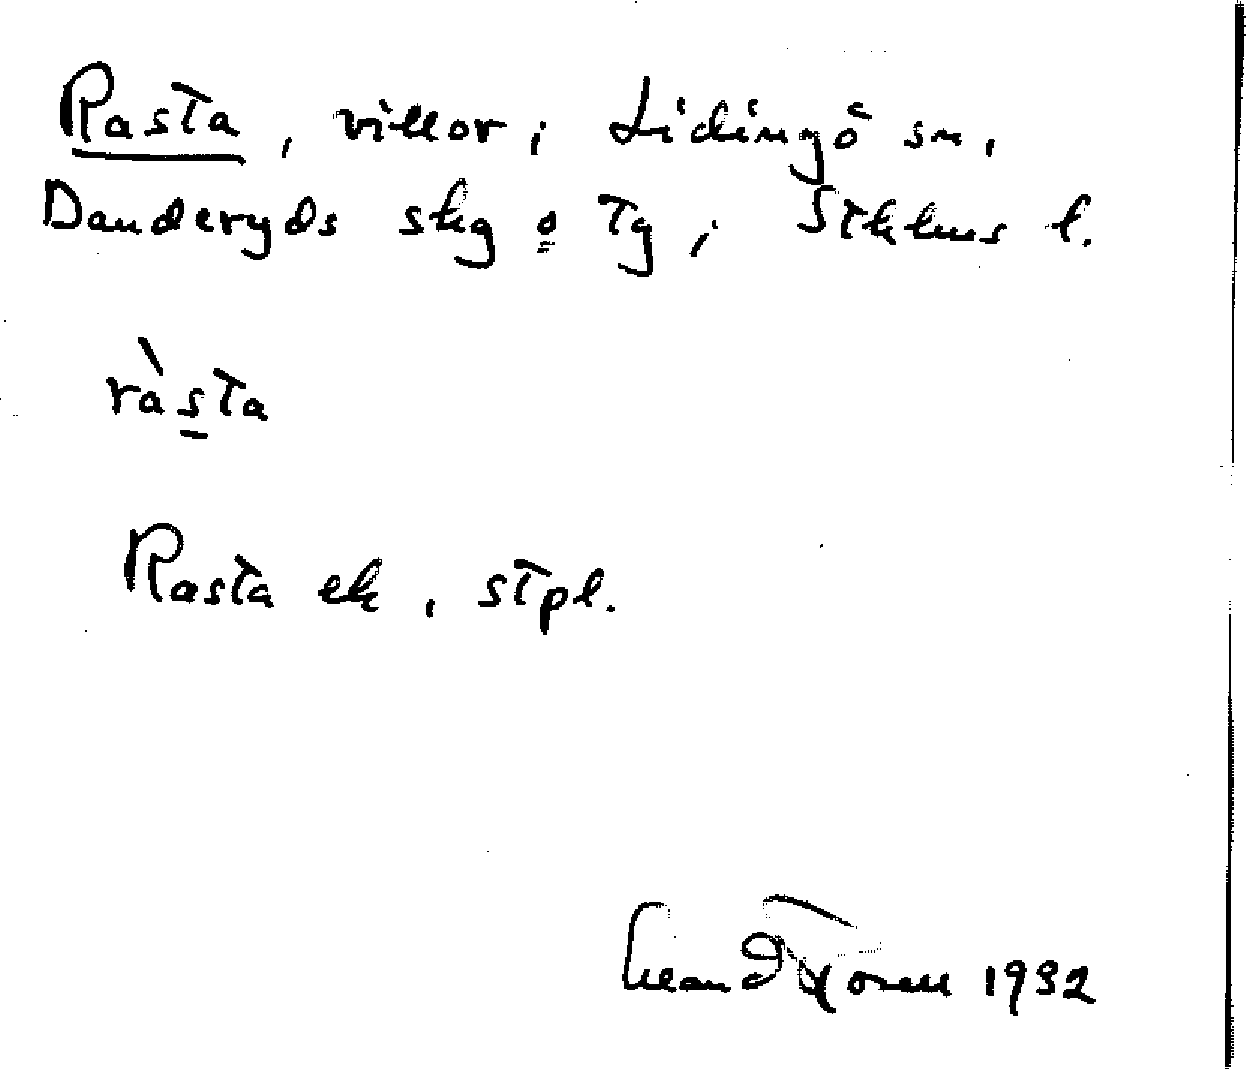 Rasta, villor i Lidingö sn,
Danderyds skg o tg, Sthlms l.
ràsta
Rasta ek, stpl.
1932